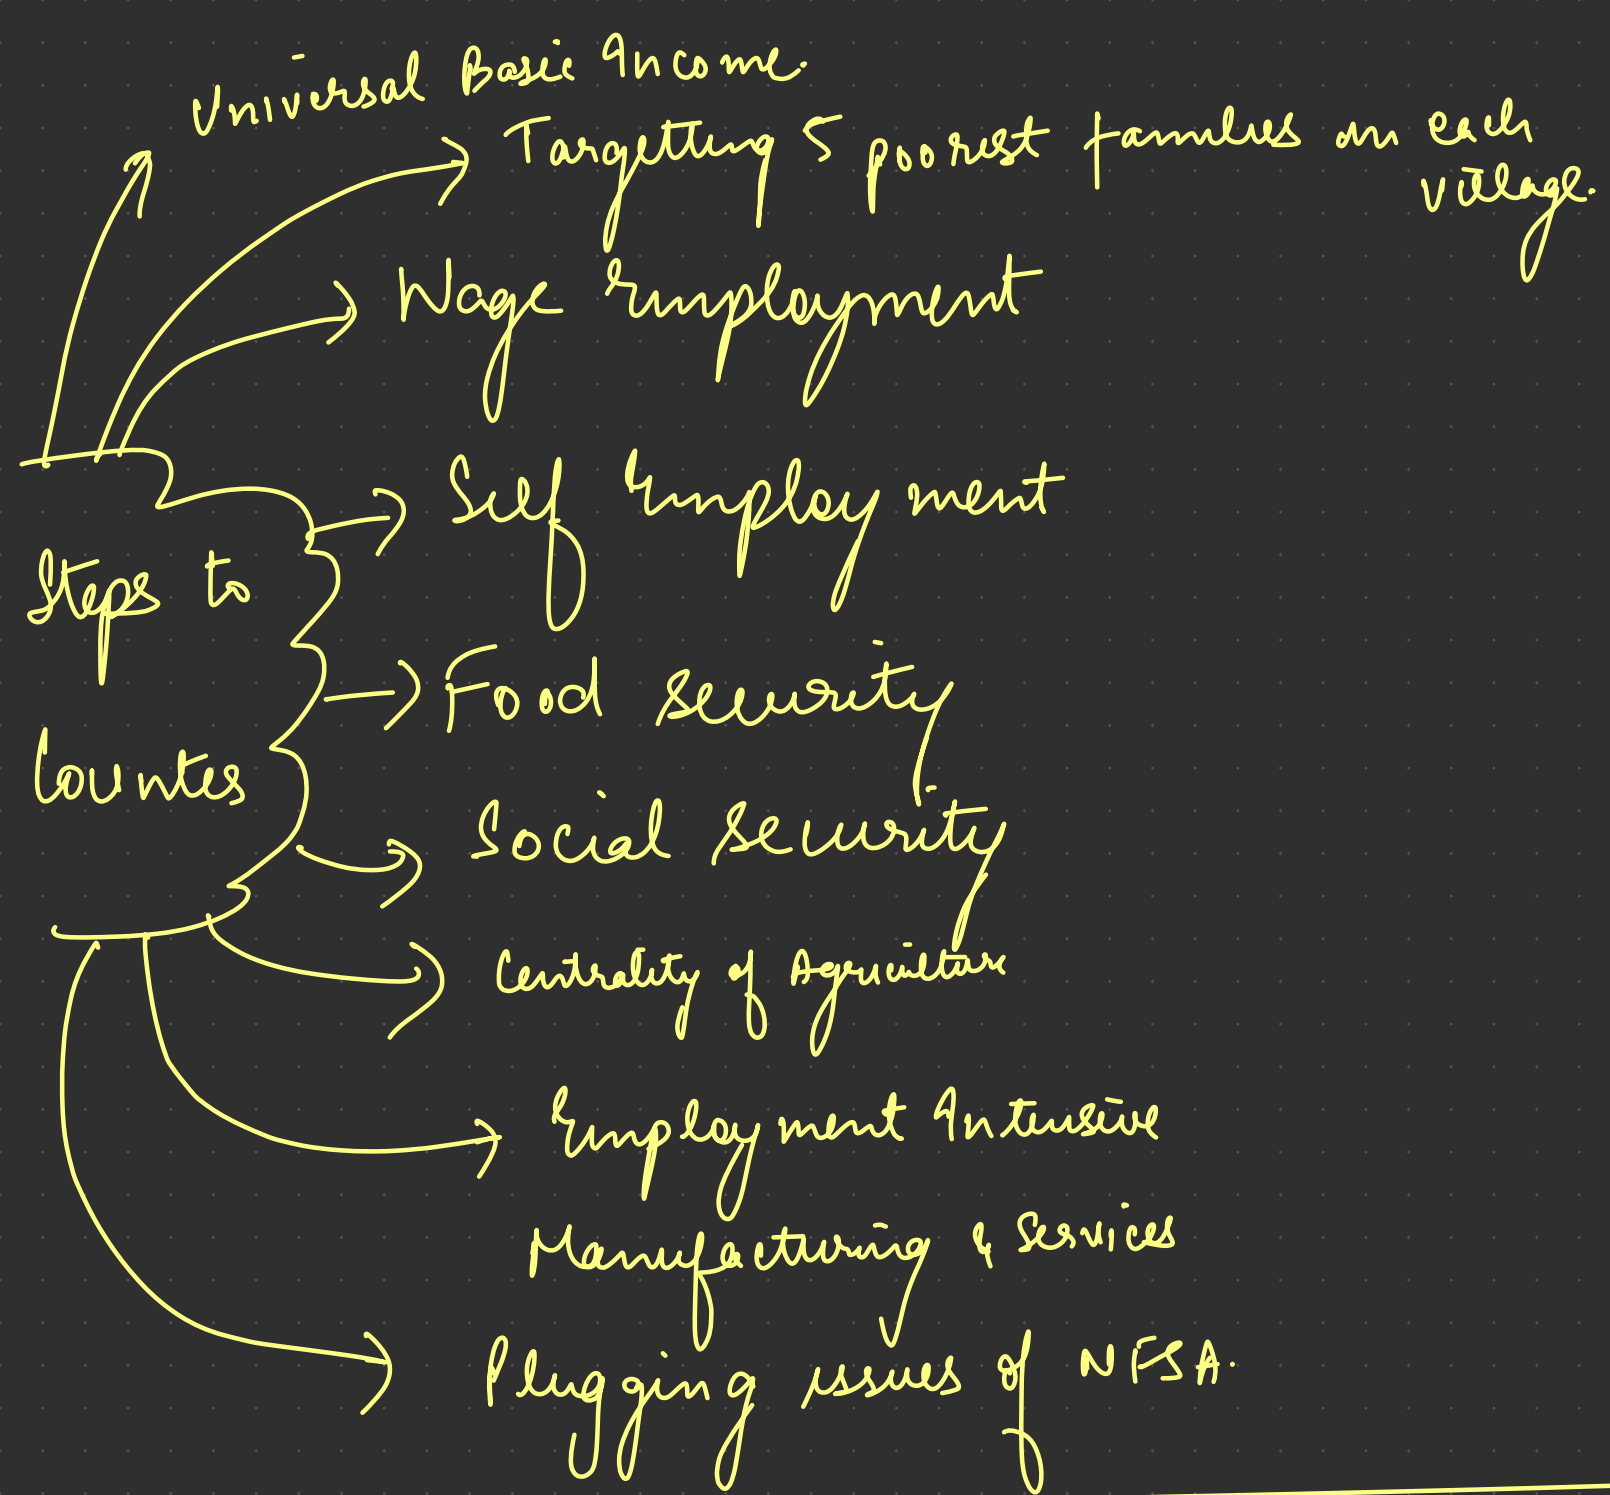 Universal Basic Income.
Targetting 5 poorest families in each
village.
Wage Employment
Self Employment
Steps to
Food security
Counter
Social security
Centrality of Agriculture
Employment Intensive
Manufacturing & Services
Plugging issues of NFSA.